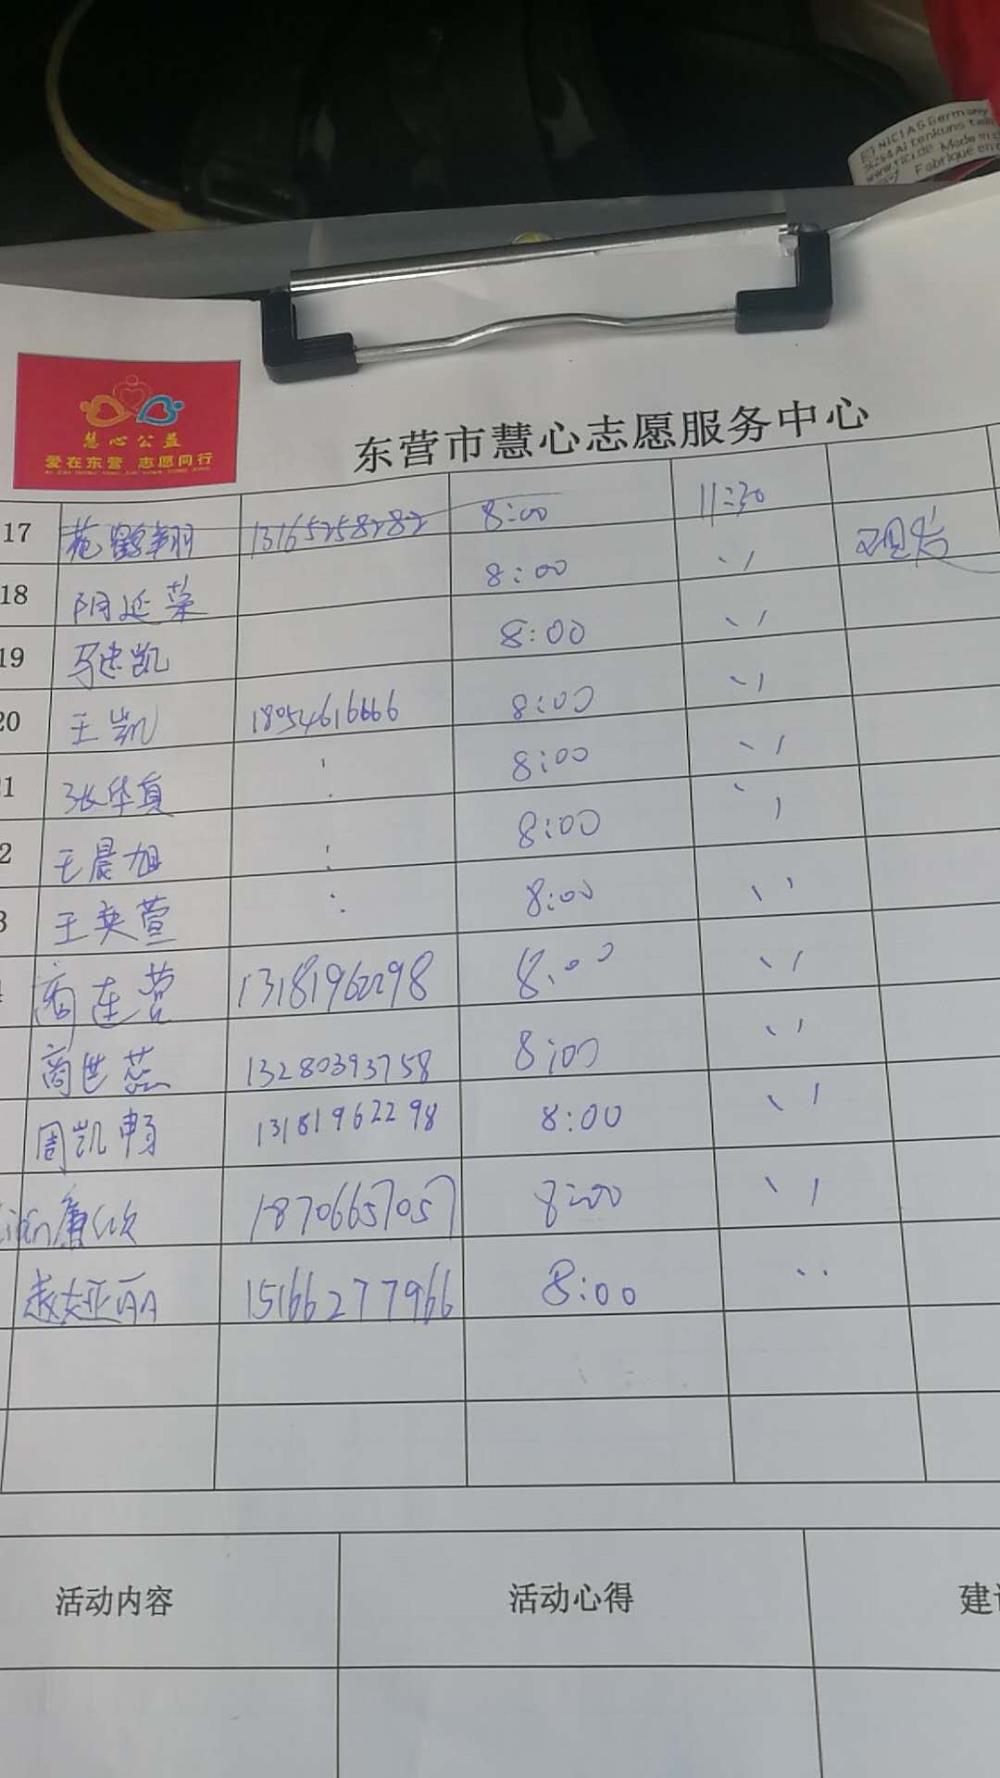 NICI AG Germany
Made in
www.nici.de
Fabriqué en
慧心公益
爱在东营 志愿同行
东营市慧心志愿服务中心
17 苑鹤翔 13165258282 8:00 11:30
18 阴延荣 8:00 、、
19 马忠凯 8:00 、、
20 王凯 18054616666 8:00 、、
1 张华真 : 8:00 、、
2 王晨旭 : 8:00 、、
3 王奕萱 : 8:00 、、
商连营 13181962298 8:00 、、
商世蕊 13280393758 8:00 、、
周凯畅 13181962298 8:00 、、
18706657057 8:00 、、
赵亚 15166277966 8:00 、、
活动内容 活动心得 建